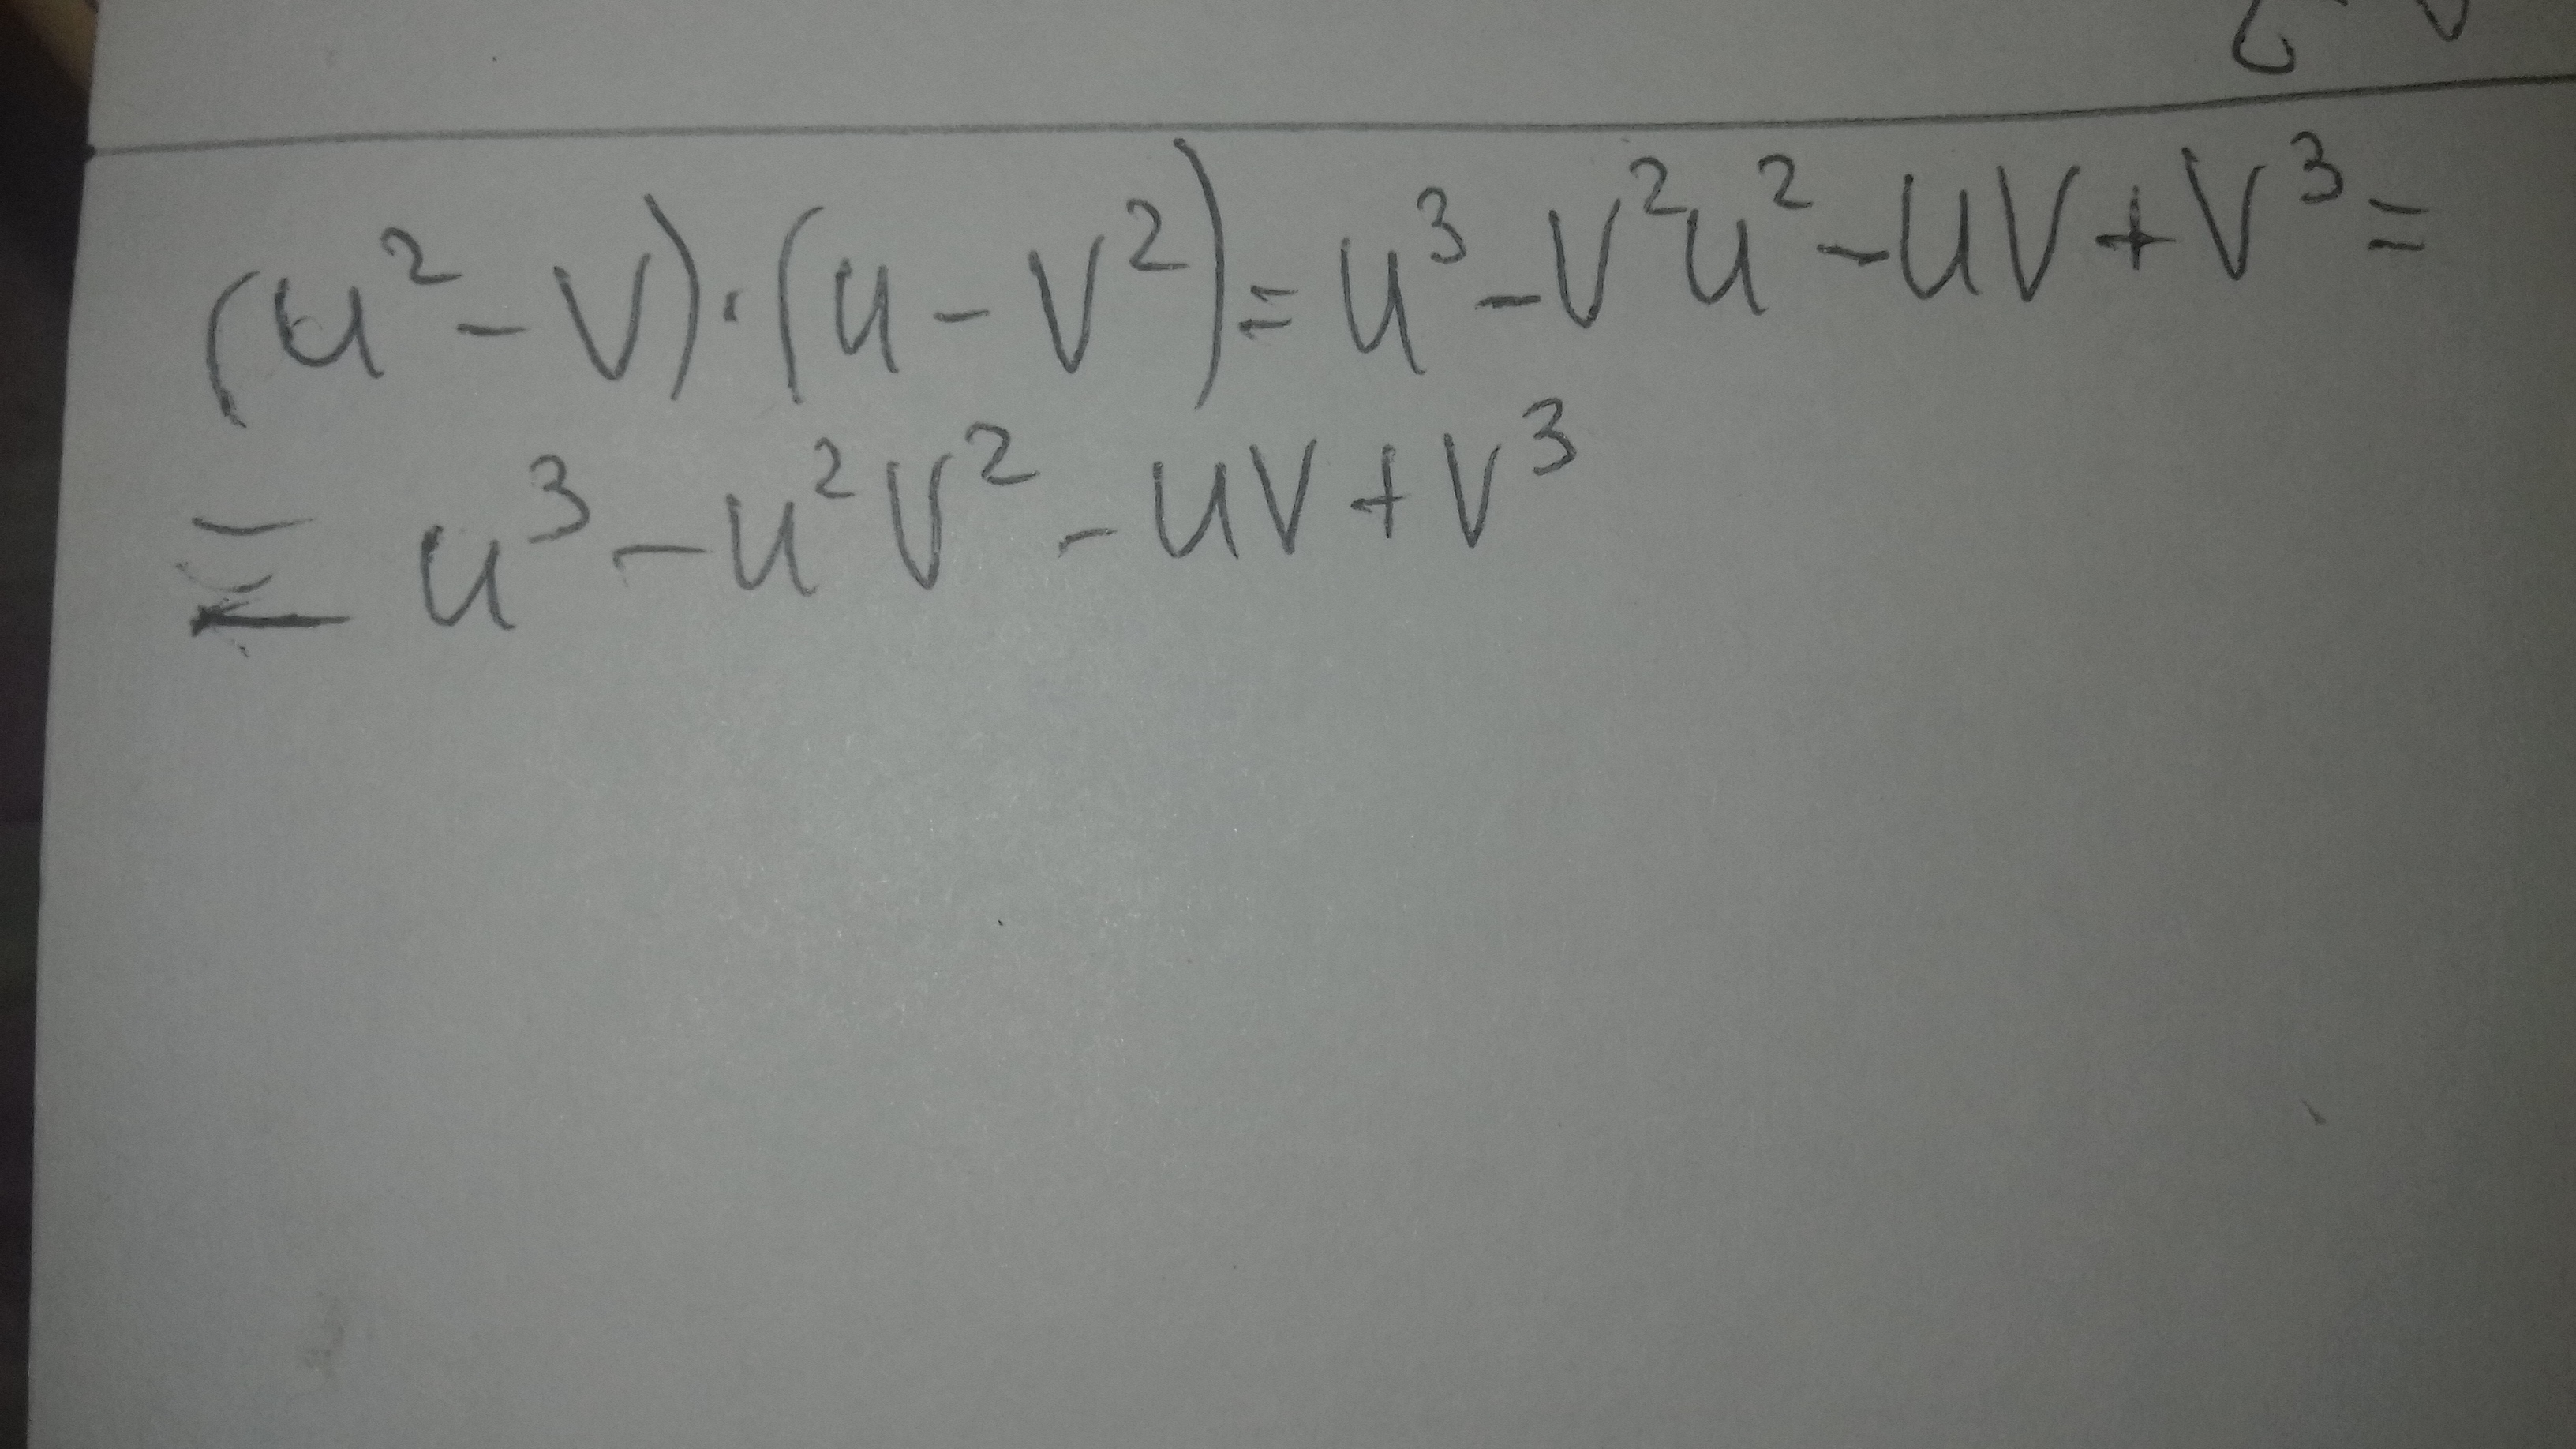 (u² - v) · (u - v²) = u³ - v²u² - uv + v³ =
= u³ - u²v² - uv + v³